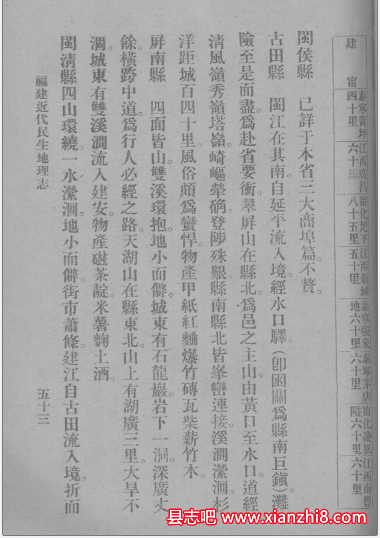 建
甯
四十里
六十里
八十五里
五十里
地六十里
六十里
隘六十里
六十里
閩侯縣　已詳于本省三大商埠篇不贅。
古田縣　閩江在其南自延平流入境經水口驛。(卽囷關爲縣南巨鎮)灘
險至是而盡。爲赴省要衝翠屏山在縣北。爲邑之主山。由黃口至水口道經
清風嶺秀嶺塔嶺。崎嶇犖确登陟殊艱。縣南縣北皆峯巒連接溪澗瀠洄杉
洋距城百四十里。風俗頗爲蠻悍。物產甲紙紅麯爆竹磚瓦柴薪竹木。
屏南縣　四面皆山雙溪環抱。地小而僻。城東有石龍巖岩下一洞深廣丈
餘。橫跨中道爲行人必經之路。天湖山在縣東北。山上有湖廣三里。大旱不
涸。城東有雙溪澗流入建安。物產磁茶靛米薯麴土酒。
閩清縣四山環繞一水瀠洄。地小而僻街市蕭條。建江自古田流入境折而
福建近代民生地理志　五十三
县志吧www.xianzhi8.com